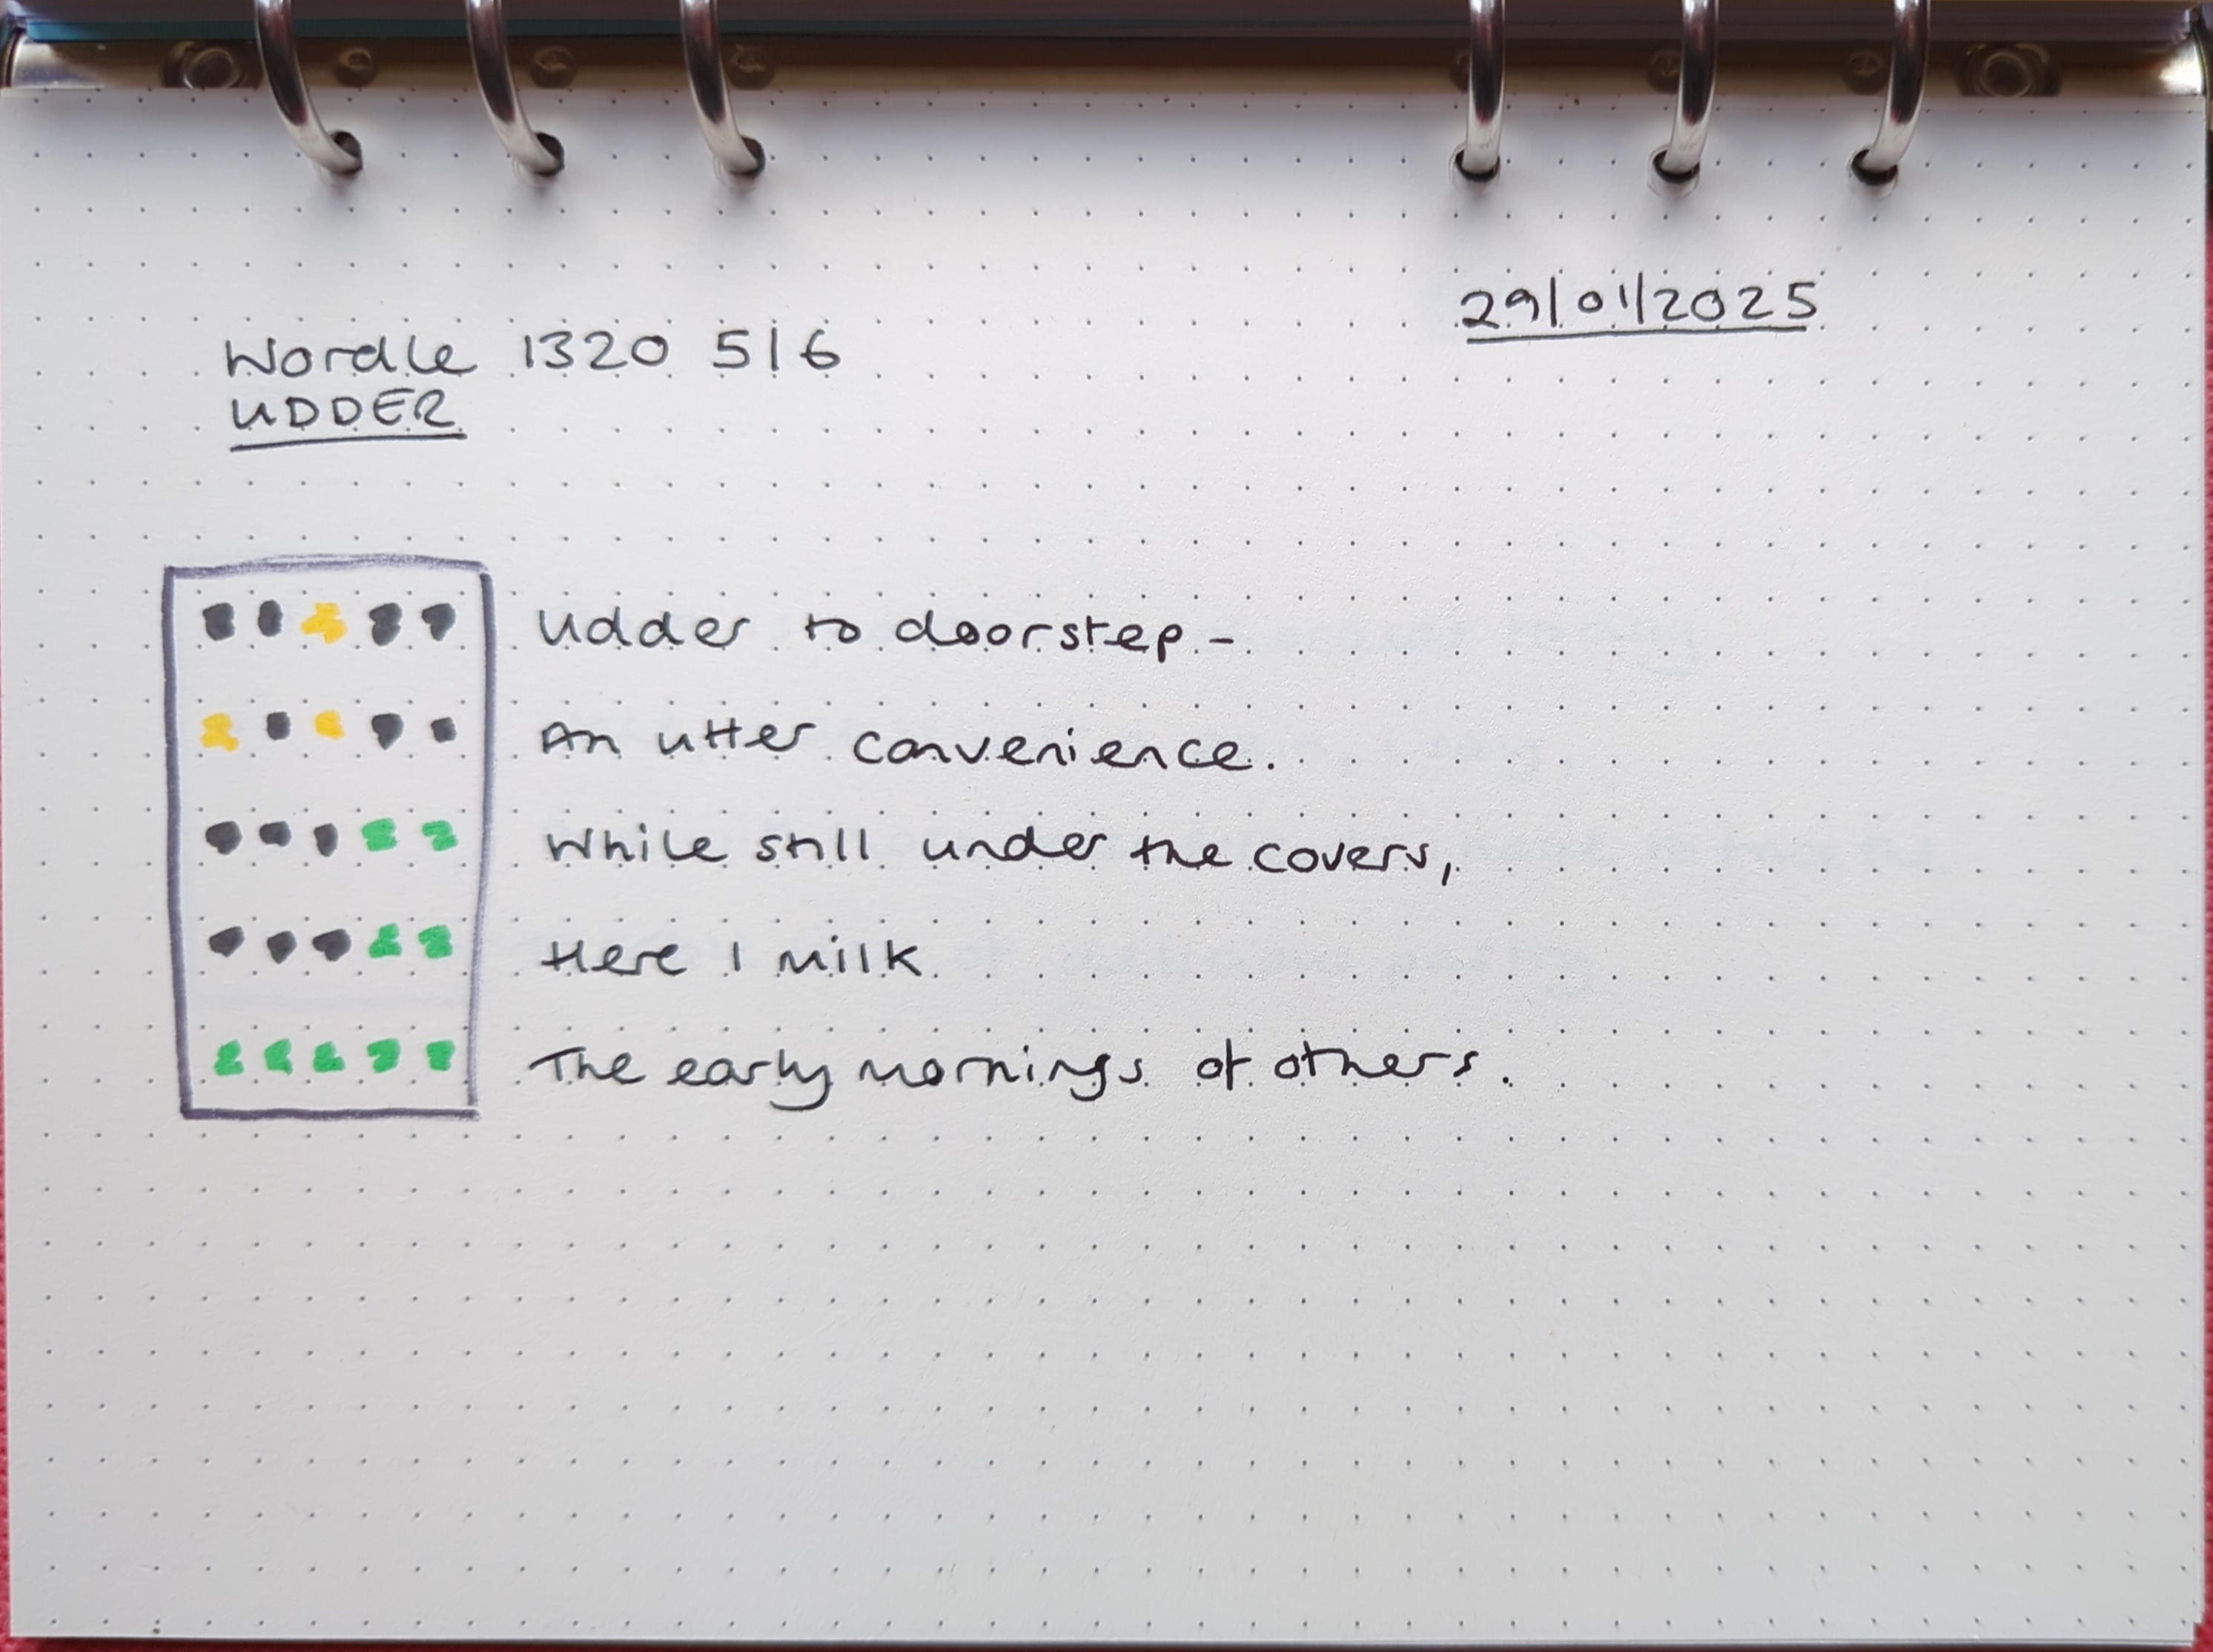 29/01/2025
Wordle 1320 5/6
UDDER
Udder to doorstep -
An utter convenience.
While still under the covers,
Here I milk
The early mornings of others.